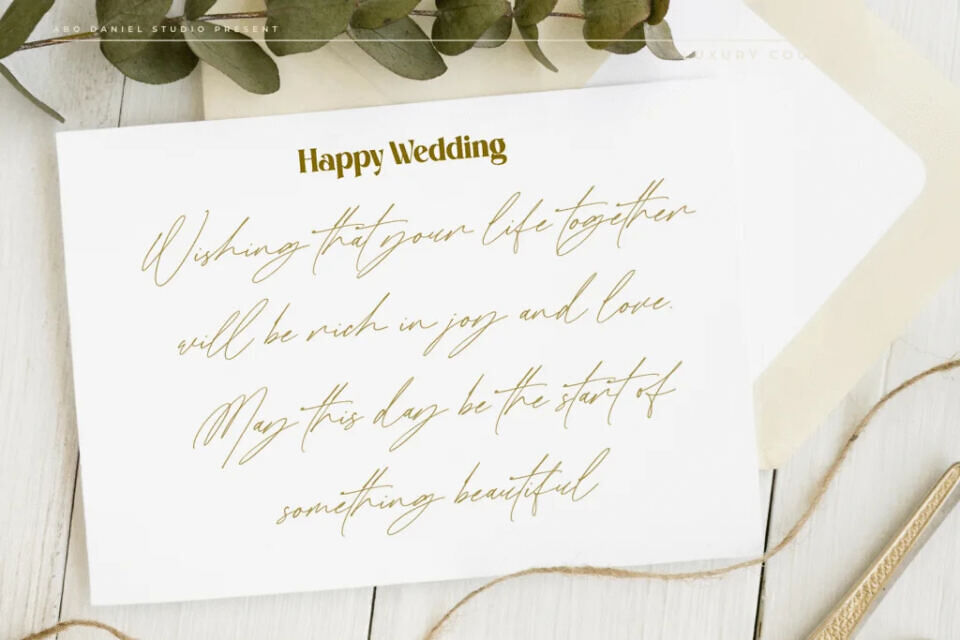 ABO DANIEL STUDIO PRESENT
Happy Wedding
Wishing that your life together
will be rich in joy and love.
May this day be the start of
something beautiful